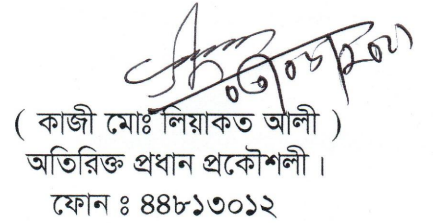 ( কাজী মোঃ লিয়াকত আলী )
অতিরিক্ত প্রধান প্রকৌশলী।
ফোন ঃ ৪৪৮১৩০১২